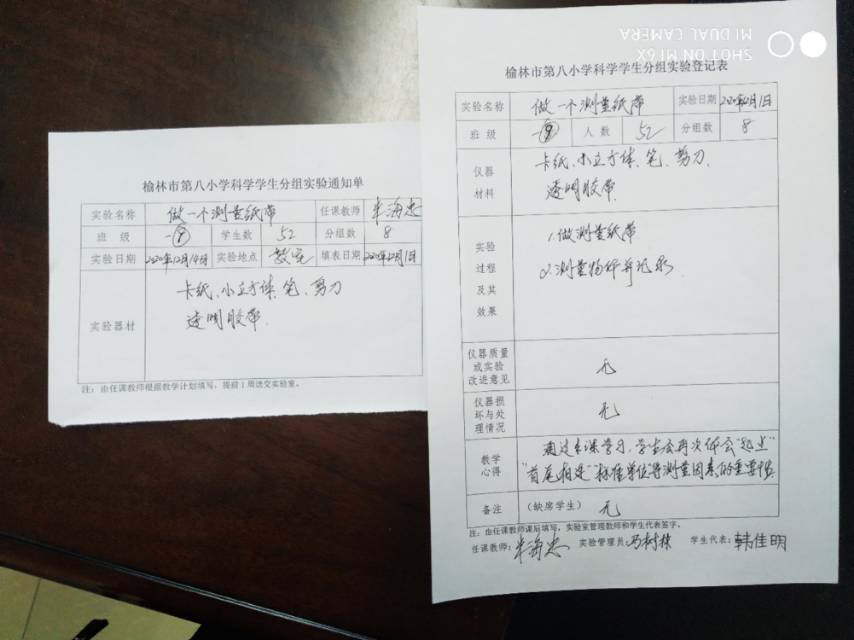 SHOT ON MI 6X
MI DUAL CAMERA
榆林市第八小学科学学生分组实验通知单
实验名称 做一个测量纸带 任课教师 海忠
班 级 学生数 52 分组数 8
实验日期 2020年12月14日 实验地点 教室 填表日期 2020年12月1日
实验器材 卡纸、小立方体、笔、剪刀
透明胶带.
注：由任课教师根据教学计划填写，提前1周送交实验室。
榆林市第八小学科学学生分组实验登记表
实验名称 做一个测量纸带 实验日期
班 级 人 数 52 分组数 8
仪器
材料
卡纸、小立方体、笔、剪刀.
透明胶带.
实验
过程
及其
效果
1.做测量纸带
2.测量物体并记录.
仪器质量
或实验
改进意见
无
仪器损
坏与处
理情况
无
教学
心得
通过本课学习,学生会再次体会"起点"
"首尾相连""标准单位"等测量因素的重要性.
备注 （缺席学生） 无
注：由任课教师课后填写，实验室管理教师和学生代表签字。
任课教师： 海忠 实验管理员： 冯树林 学生代表： 韩佳明